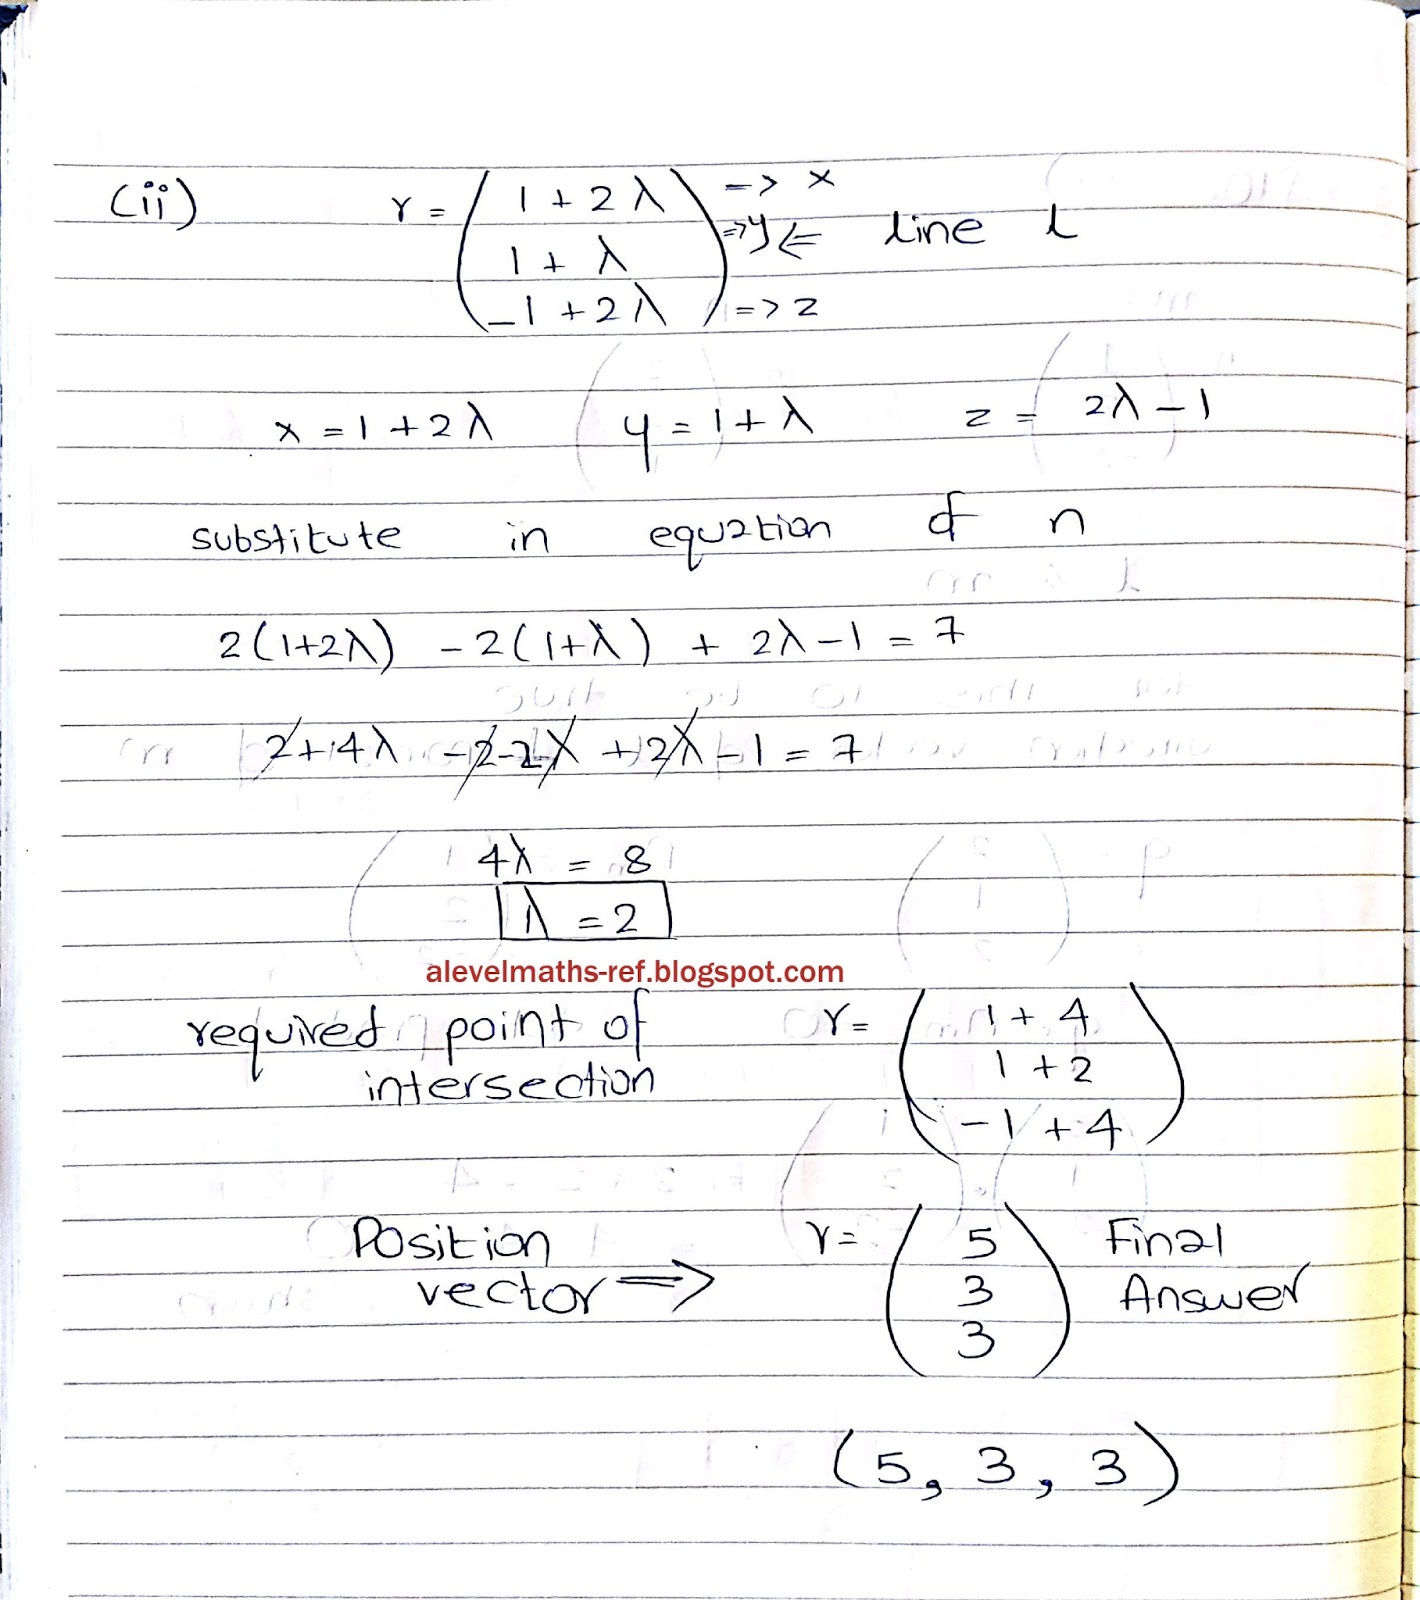 (ii) r = ( 1 + 2λ => x
1 + λ => y <= line l
-1 + 2λ ) => z
x = 1 + 2λ y = 1 + λ z = 2λ - 1
substitute in equation of n
2(1+2λ) - 2(1+λ) + 2λ - 1 = 7
2 + 4λ - 2 - 2λ + 2λ - 1 = 7
4λ = 8
λ = 2
alevelmaths-ref.blogspot.com
required point of intersection r = ( 1 + 4
1 + 2
-1 + 4 )
Position vector => r = ( 5
3
3 ) Final Answer
(5, 3, 3)